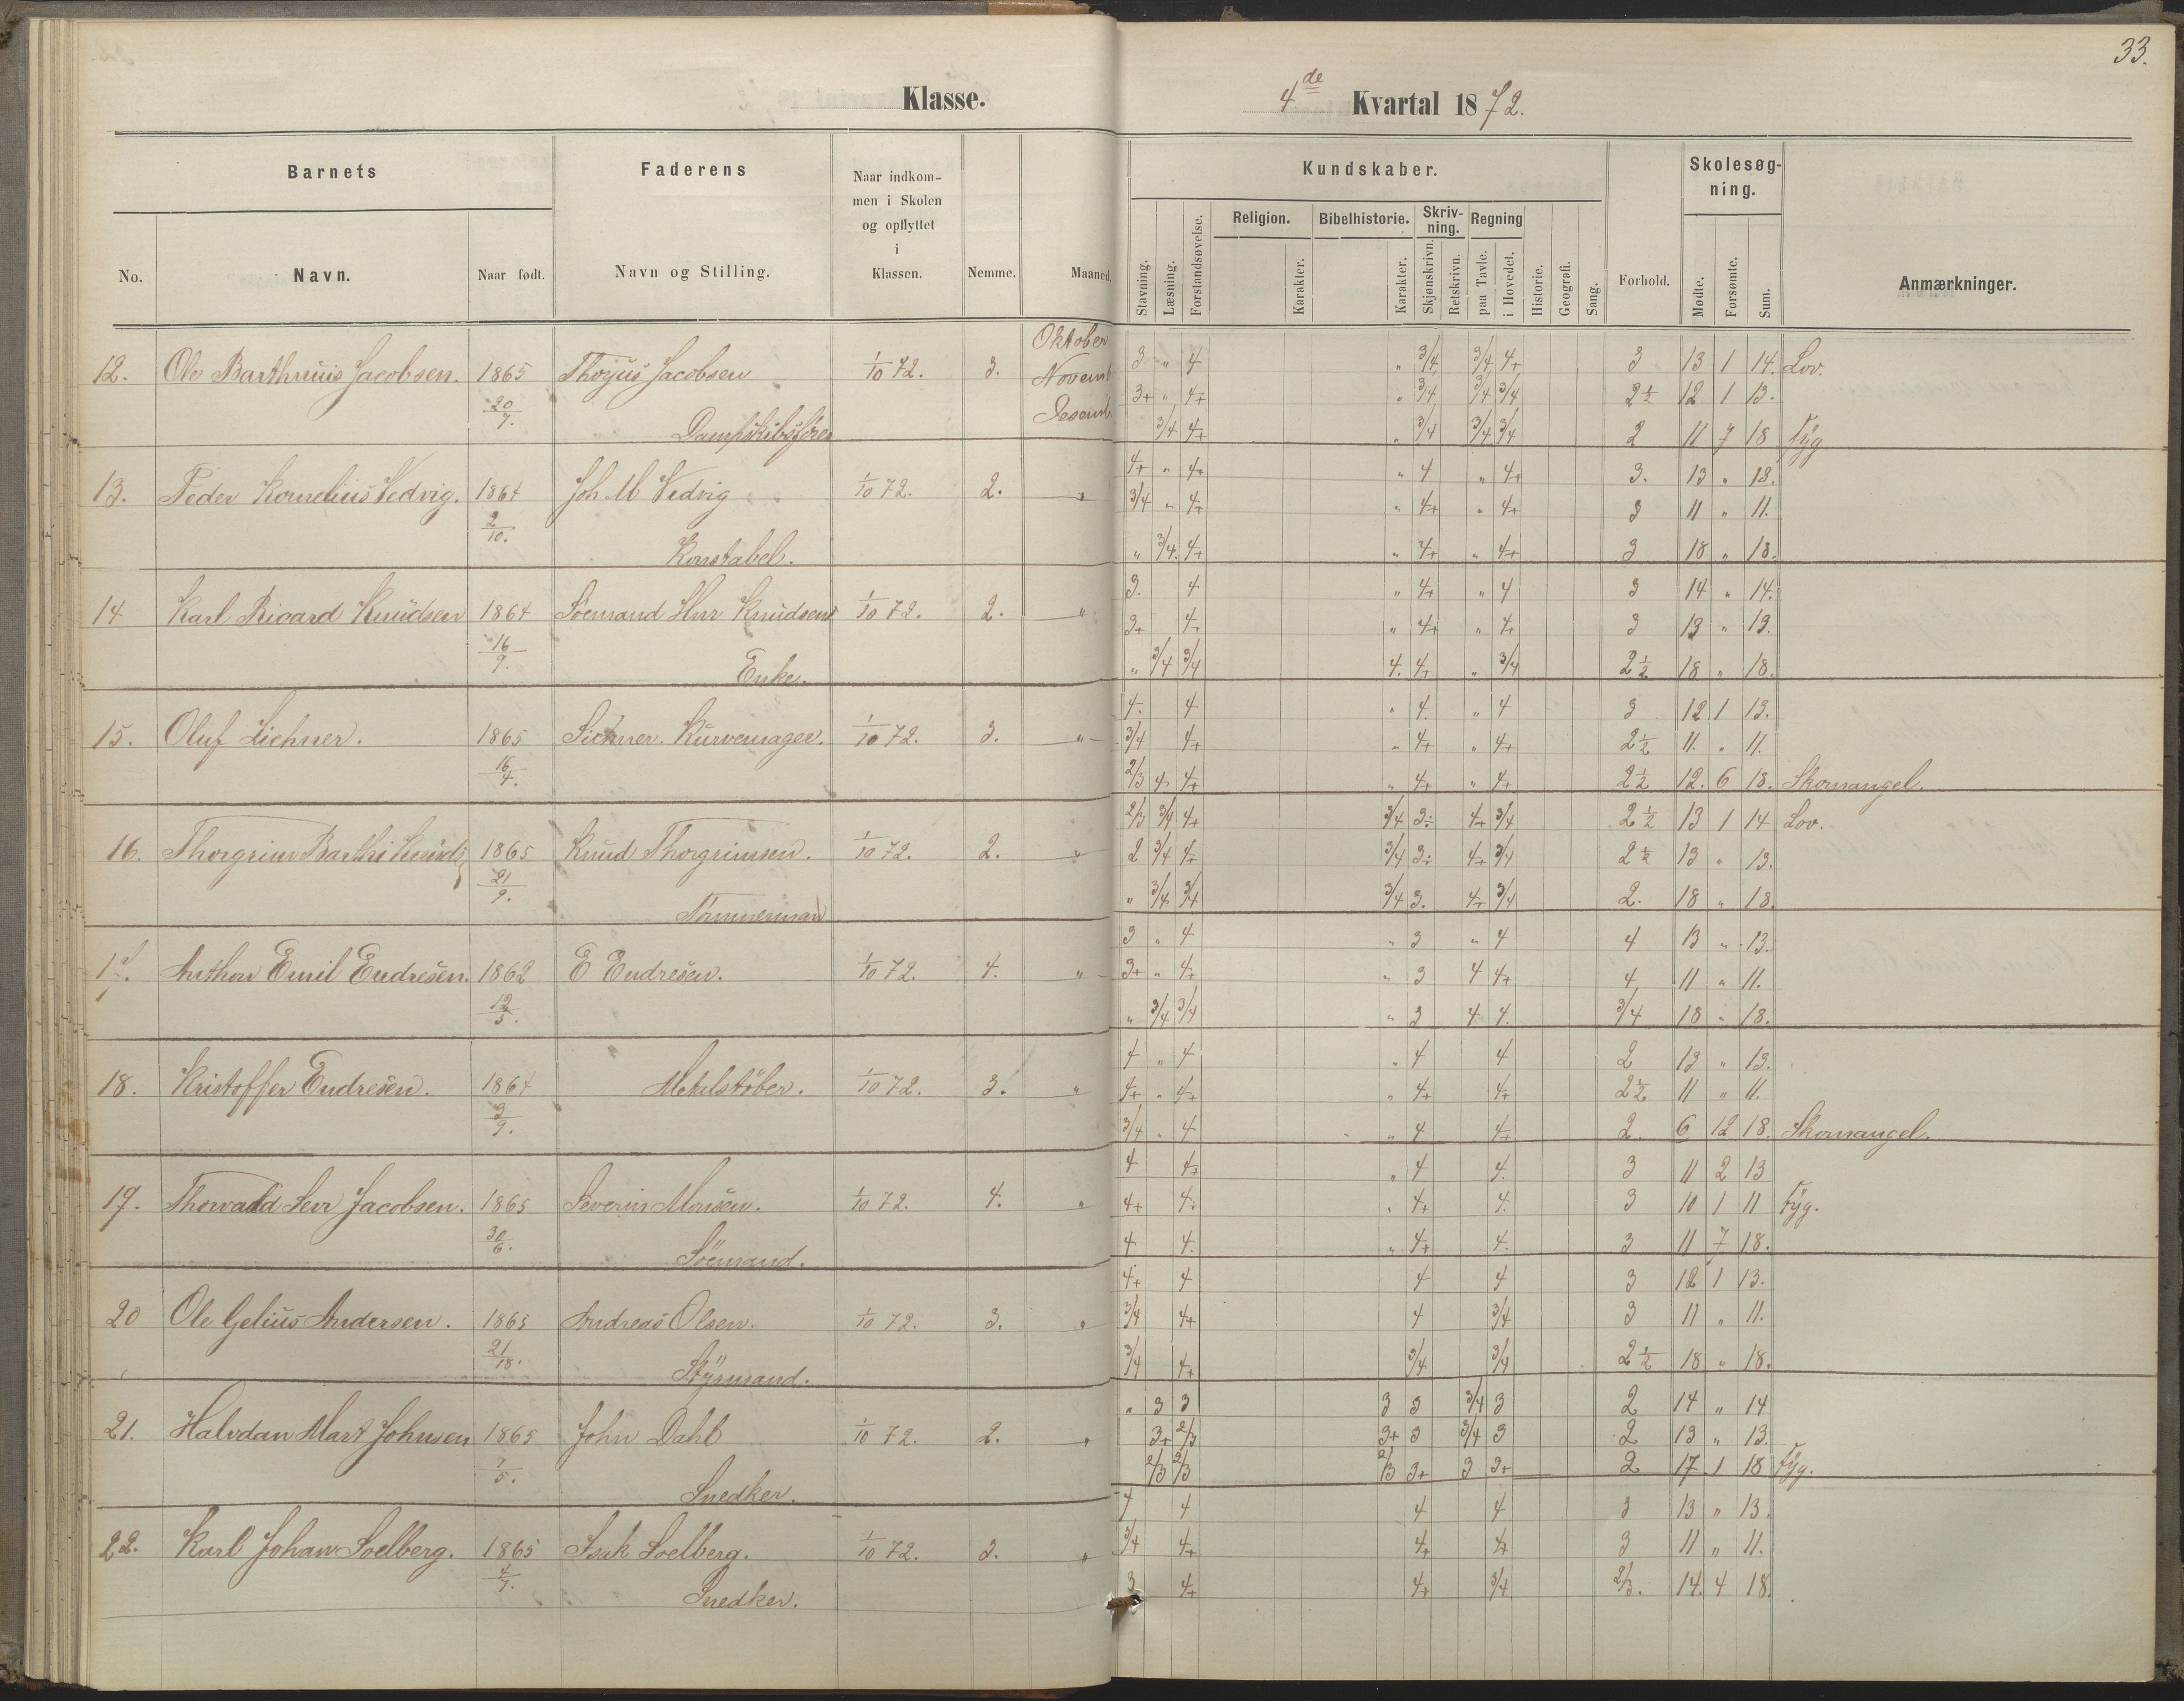 33.
Klasse.
4de Kvartal 1872.
Barnets
Faderens
Naar indkom-
men i Skolen
og opflyttet
i
Klassen.
No.
Navn.
Naar født.
Navn og Stilling.
Nemme.
Maaned.
Kundskaber.
Stavning.
Læsning.
Forstandsøvelse.
Religion.
Karakter.
Bibelhistorie.
Karakter.
Skriv-
ning.
Skjønskrivn.
Retskrivn.
Regning
paa Tavle.
i Hovedet.
Historie.
Geografi.
Sang.
Forhold.
Skolesøg-
ning.
Mødte.
Forsømte.
Sum.
Anmærkninger.
12. Ole Jacobsen. 1865 20/7. Jacobsen 1/10 72. 3. Oktober 3 " 4 " 3/4 3/4 4+ 3 13 1 14. Lov.
3+ " 4+ " 3/4 3/4 3/4 2½ 12 1 13.
3/4 4+ " 3/4 3/4 3/4 2 11 7 18 Syg
13. Peder Kornelius Vedvig. 1864 2/10. Joh M Vedvig 1/10 72. 2. " 4+ " 4+ " 4 " 4+ 3. 13 " 13.
3/4 " 4+ " 4+ " 4+ 3 11 " 11.
Konstabel. " 3/4. 4+ " 4+ " 4+ 3 18 " 18.
14 Karl Ricard Knudsen 1864 16/9. Søemand Knudsens 1/10 72. 2. " 3. 4 " 4+ " 4 3 14 " 14.
3+ 4+ " 4+ " 4+ 3 13 " 13.
Enke. " 3/4 3/4 4. 4+ " 3/4 2½ 18 " 18.
15. Oluf Lichner. 1865 16/4. Lichner. Kurvemager. 1/10 72. 3. " 4. 4 " 4. " 4 3 12 1 13.
3/4 4+ " 4+ " 4+ 2½ 11. " 11.
2/3 4 4+ " 4+ " 4+ 2½ 12. 6 18. Skomangel.
16. Thorgrim 1865 21/9. Knud Thorgrimsen. 1/10 72. 2. " 2/3 3/4 4+ 3/4 3÷ 4+ 3/4 2½ 13 1 14 Lov.
2 3/4 4+ 3/4 3÷ 4+ 3/4 2½ 13 " 13.
Tømmermand " 3/4 3/4 3/4 3. 4+ 3/4 2. 18 " 18.
17. Anthon Emil Endresen. 1862 12/5. E Endresen. 1/10 72. 4. " 3 " 4 " 3 " 4 4 13 " 13.
3+ " 4+ " 3 4 4+ 4 11 " 11.
" 3/4 3/4 " 3 4 4. 3/4 18 " 18.
18. Kristoffer Endresen. 1864 3/9. Metalstöber. 1/10 72. 3. " 4 " 4 " 4 4 2 13 " 13.
4+ " 4+ " 4+ 4+ 2½ 11 " 11.
3/4 " 4 " 4 4+ 2 6 12 18. Skomangel.
19. Jacobsen. 1865 30/6. Severin Monsen. 1/10 72. 4. " 4 4+ " 4 4. 3 11 2 13
4+ 4÷ " 4+ 4. 3 10 1 11 Syg.
Söemand. 4 4. " 4+ 4. 3 11 7 18.
20 Ole Gelius Andersen. 1865 Andreas Olsen. 1/10 72. 3. " 4+ 4 4 4 3 12 1 13.
3/4 4+ 4 3/4 3 11 " 11.
Styrmand. 3/4 4+ 3/4 3/4 2½ 18 " 18.
21. Halvdan Mart Johnsen 1865 7/5. John Dahl 1/10 72. 2. " " 3 3 3 3 3/4 3 2 14 " 14
3+ 2/3 3+ 3 3/4 3 2 13 " 13.
Snedker. 2/3 2/3 2/3 3+ 3 3+ 2 17 1 18 Syg.
22. Karl Johan Soelberg. 1865 4/7. Isak Soelberg. 1/10 72. 3. " 4 4 4 4 3 13 " 13.
3/4 4+ 4+ 4+ 3 11 " 11.
Snedker. 3 4+ 4+ 3/4 2/3. 14. 4 18.